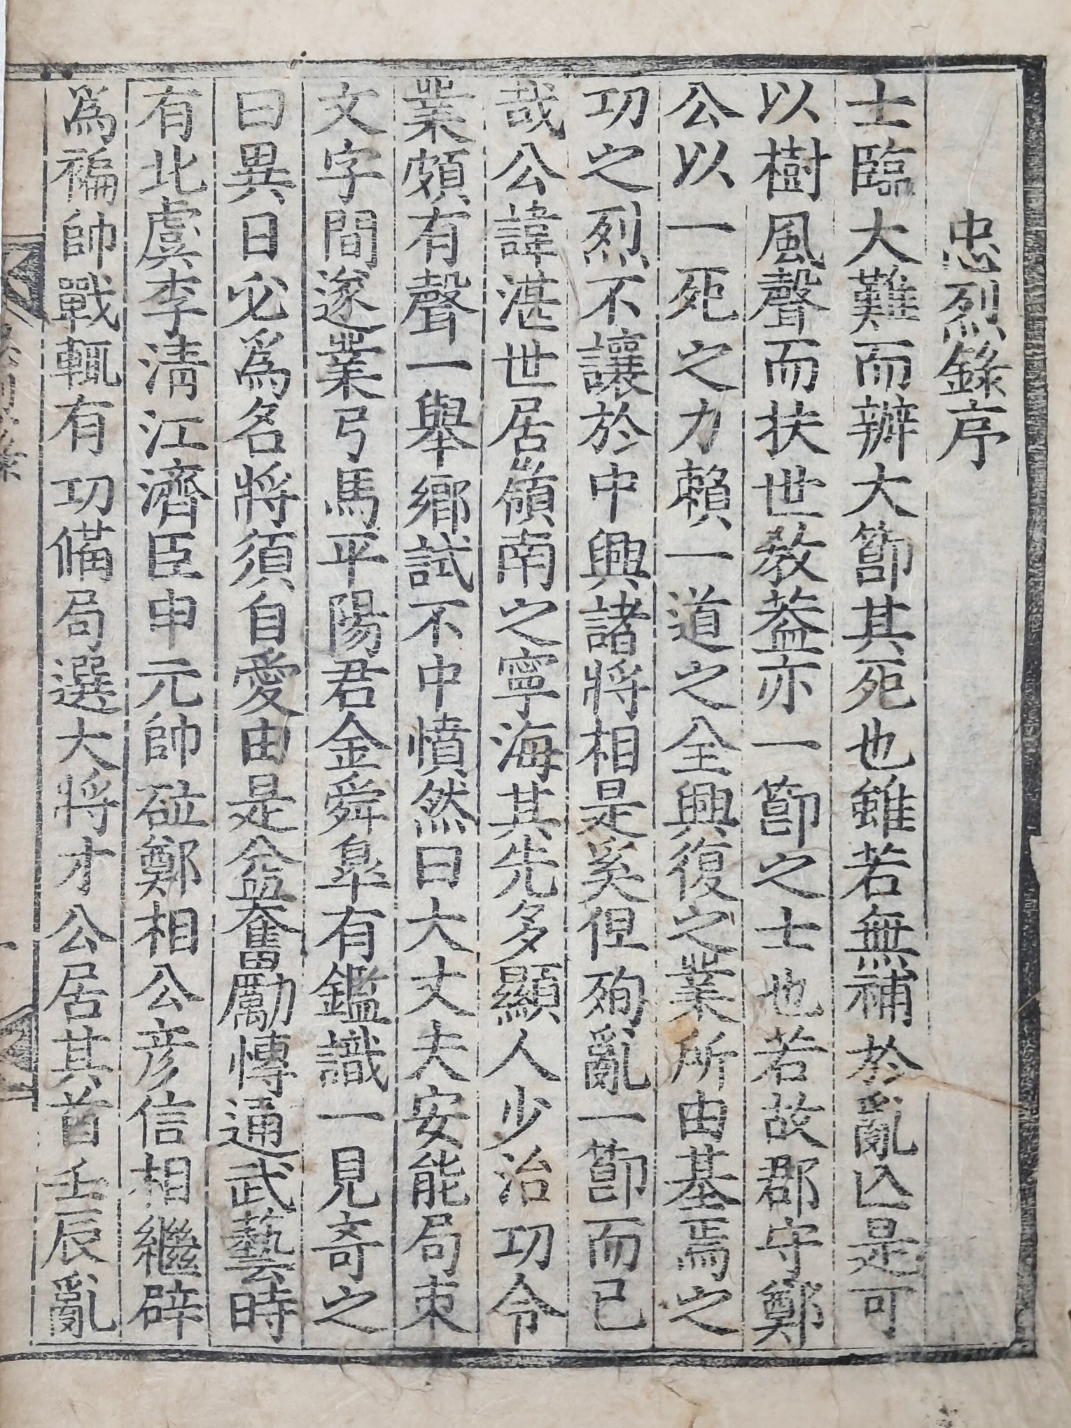 忠烈錄序
士臨大難而辦大節其死也雖若無補於亂亾是可
以樹風聲而扶世敎盖亦一節之士也若故郡守鄭
公以一死之力賴一道之全興復之業所由基焉之
功之烈不讓於中興諸將相是奚但殉亂一節而已
哉公諱湛世居嶺南之寧海其先多顯人少治功令
業頗有聲一舉鄕試不中憤然曰大丈夫安能局束
文字間遂業弓馬平陽君金舜皐有鑑識一見奇之
曰異日必爲名將須自愛由是益奮勵慱通武藝時
有北虞李淸江濟臣申元帥砬鄭相公彦信相繼辟
爲褊帥戰輒有功備局選大將才公居其首壬辰亂